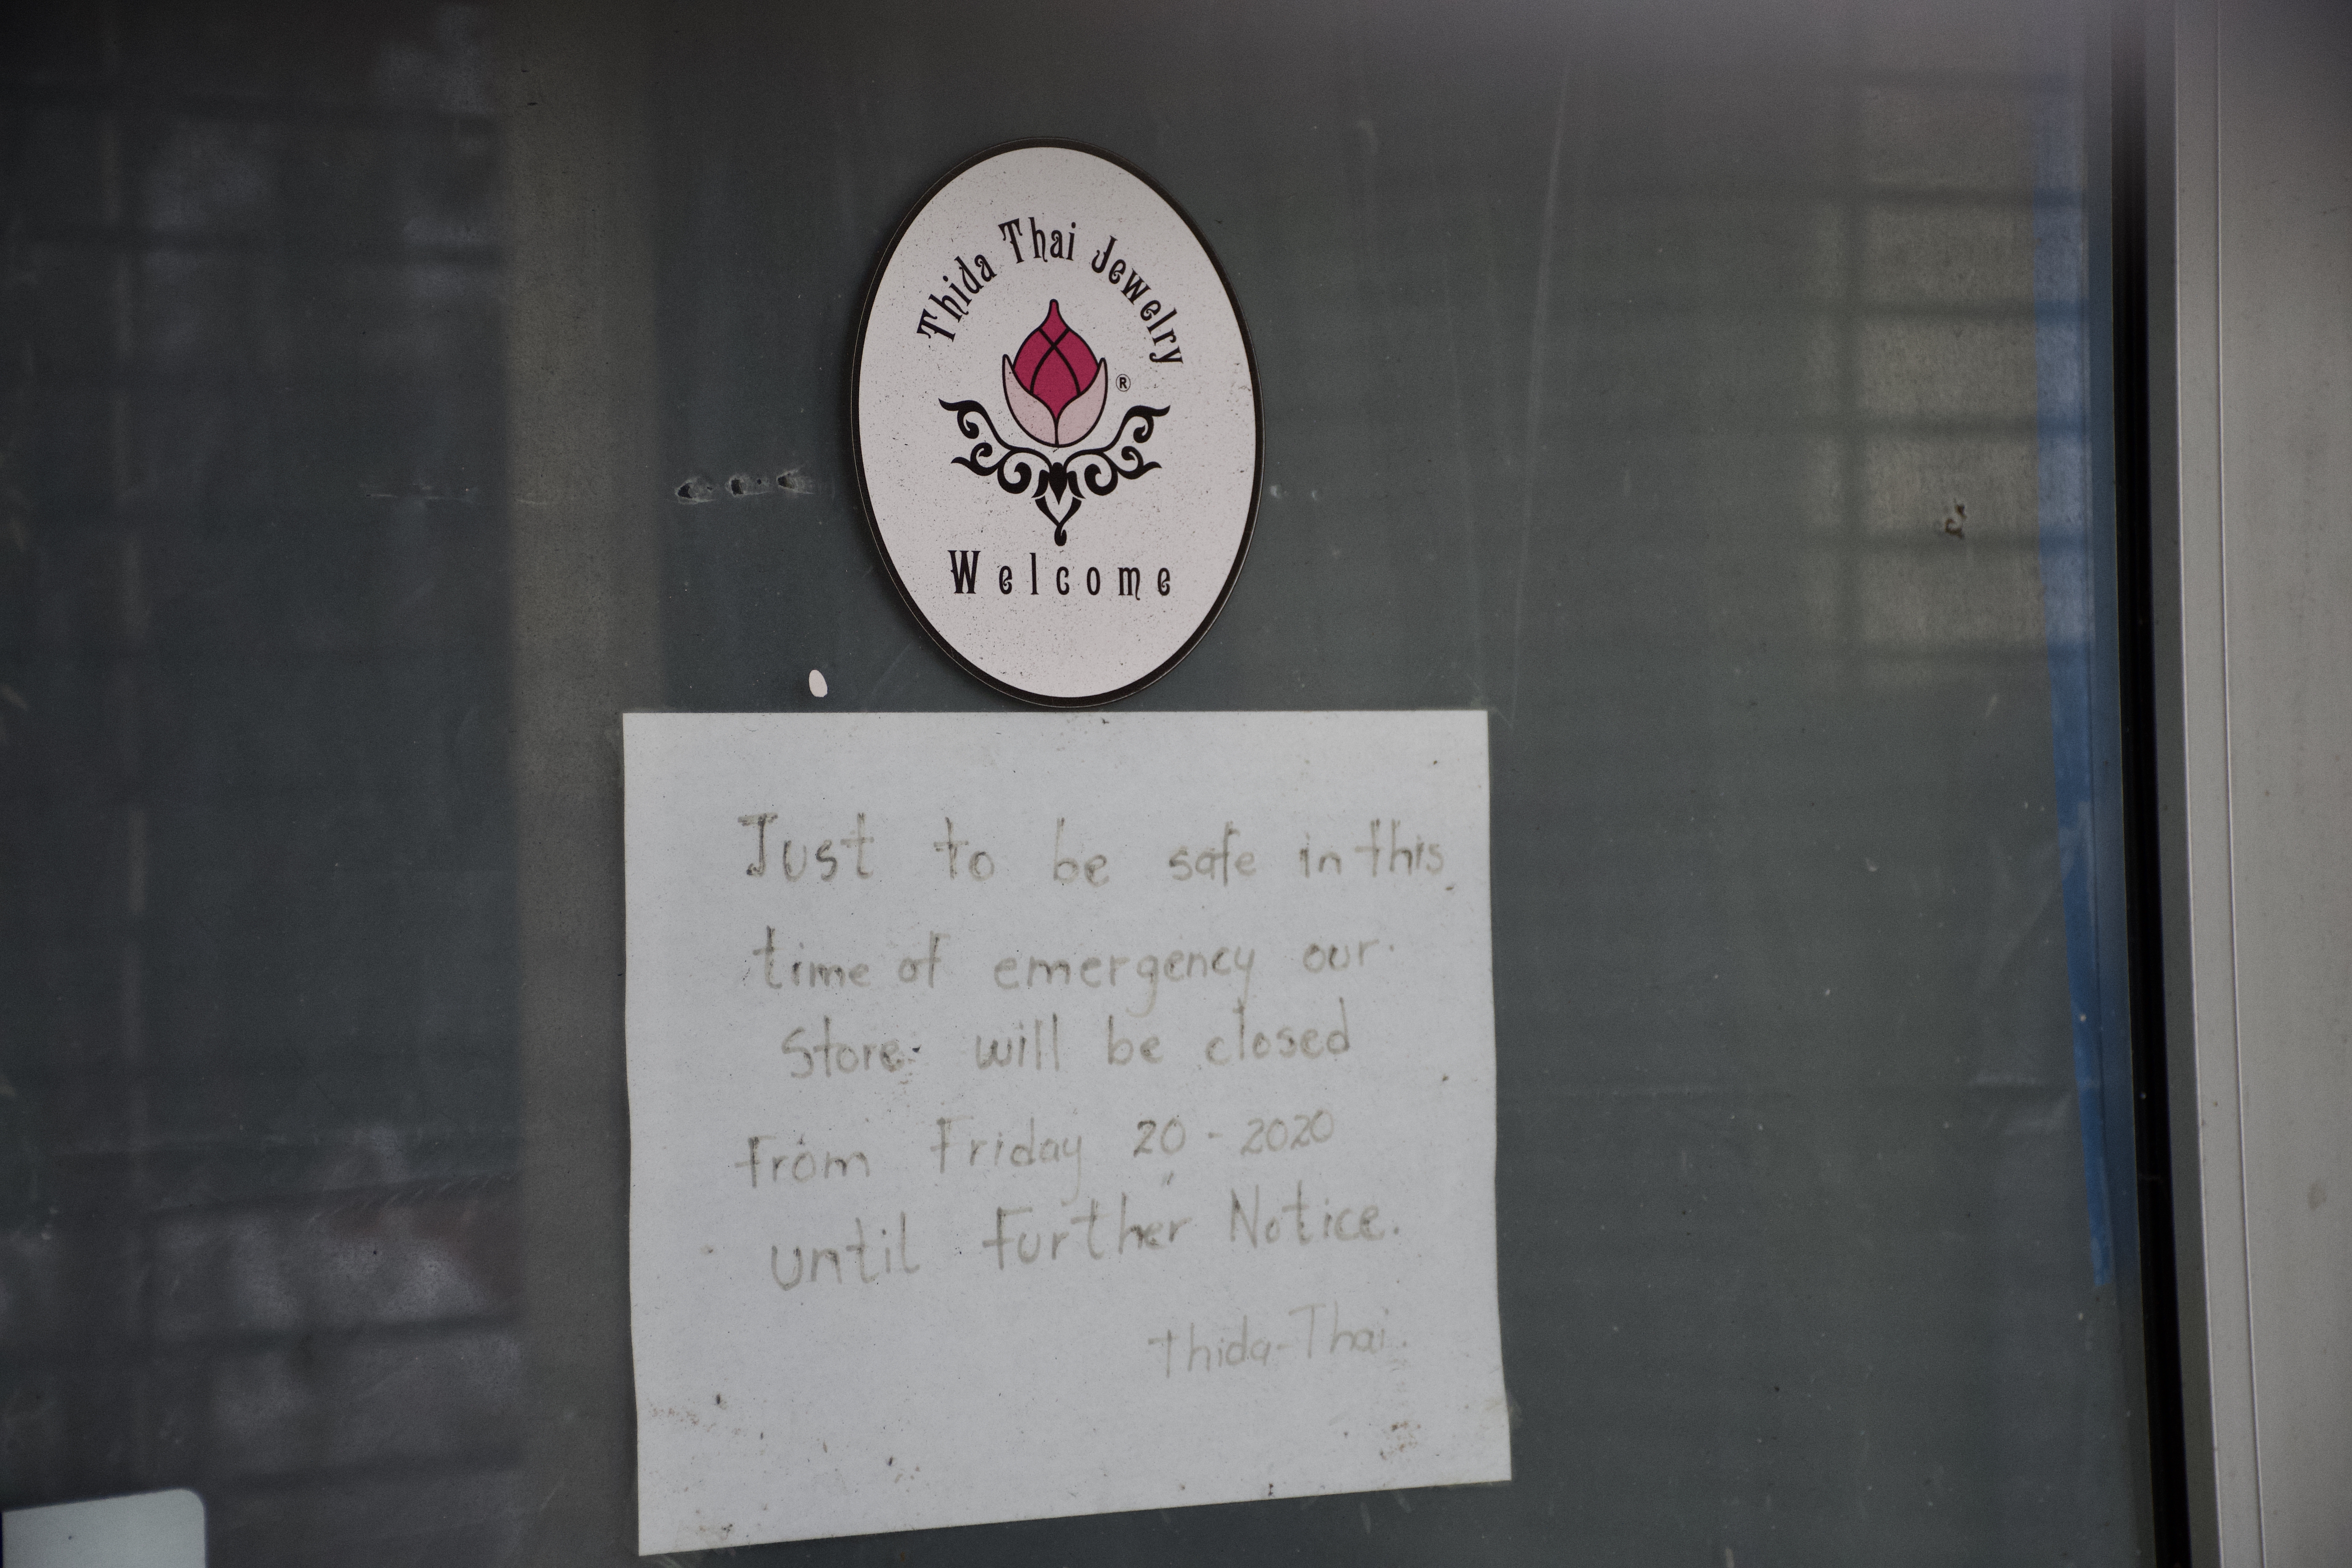 Thida Thai Jewelry
®
Welcome
Just to be safe in this
time of emergency our
Store will be closed
from Friday 20 - 2020
until Further Notice.
Thida-Thai.